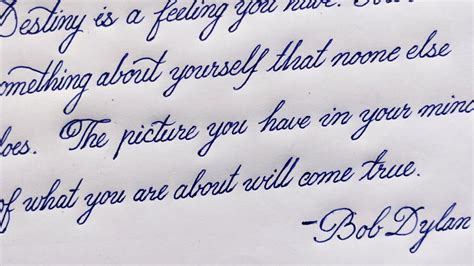 Destiny is a feeling you have.
omething about yourself that noone else
oes. The picture you have in your mind
of what you are about will come true.
-Bob Dylan